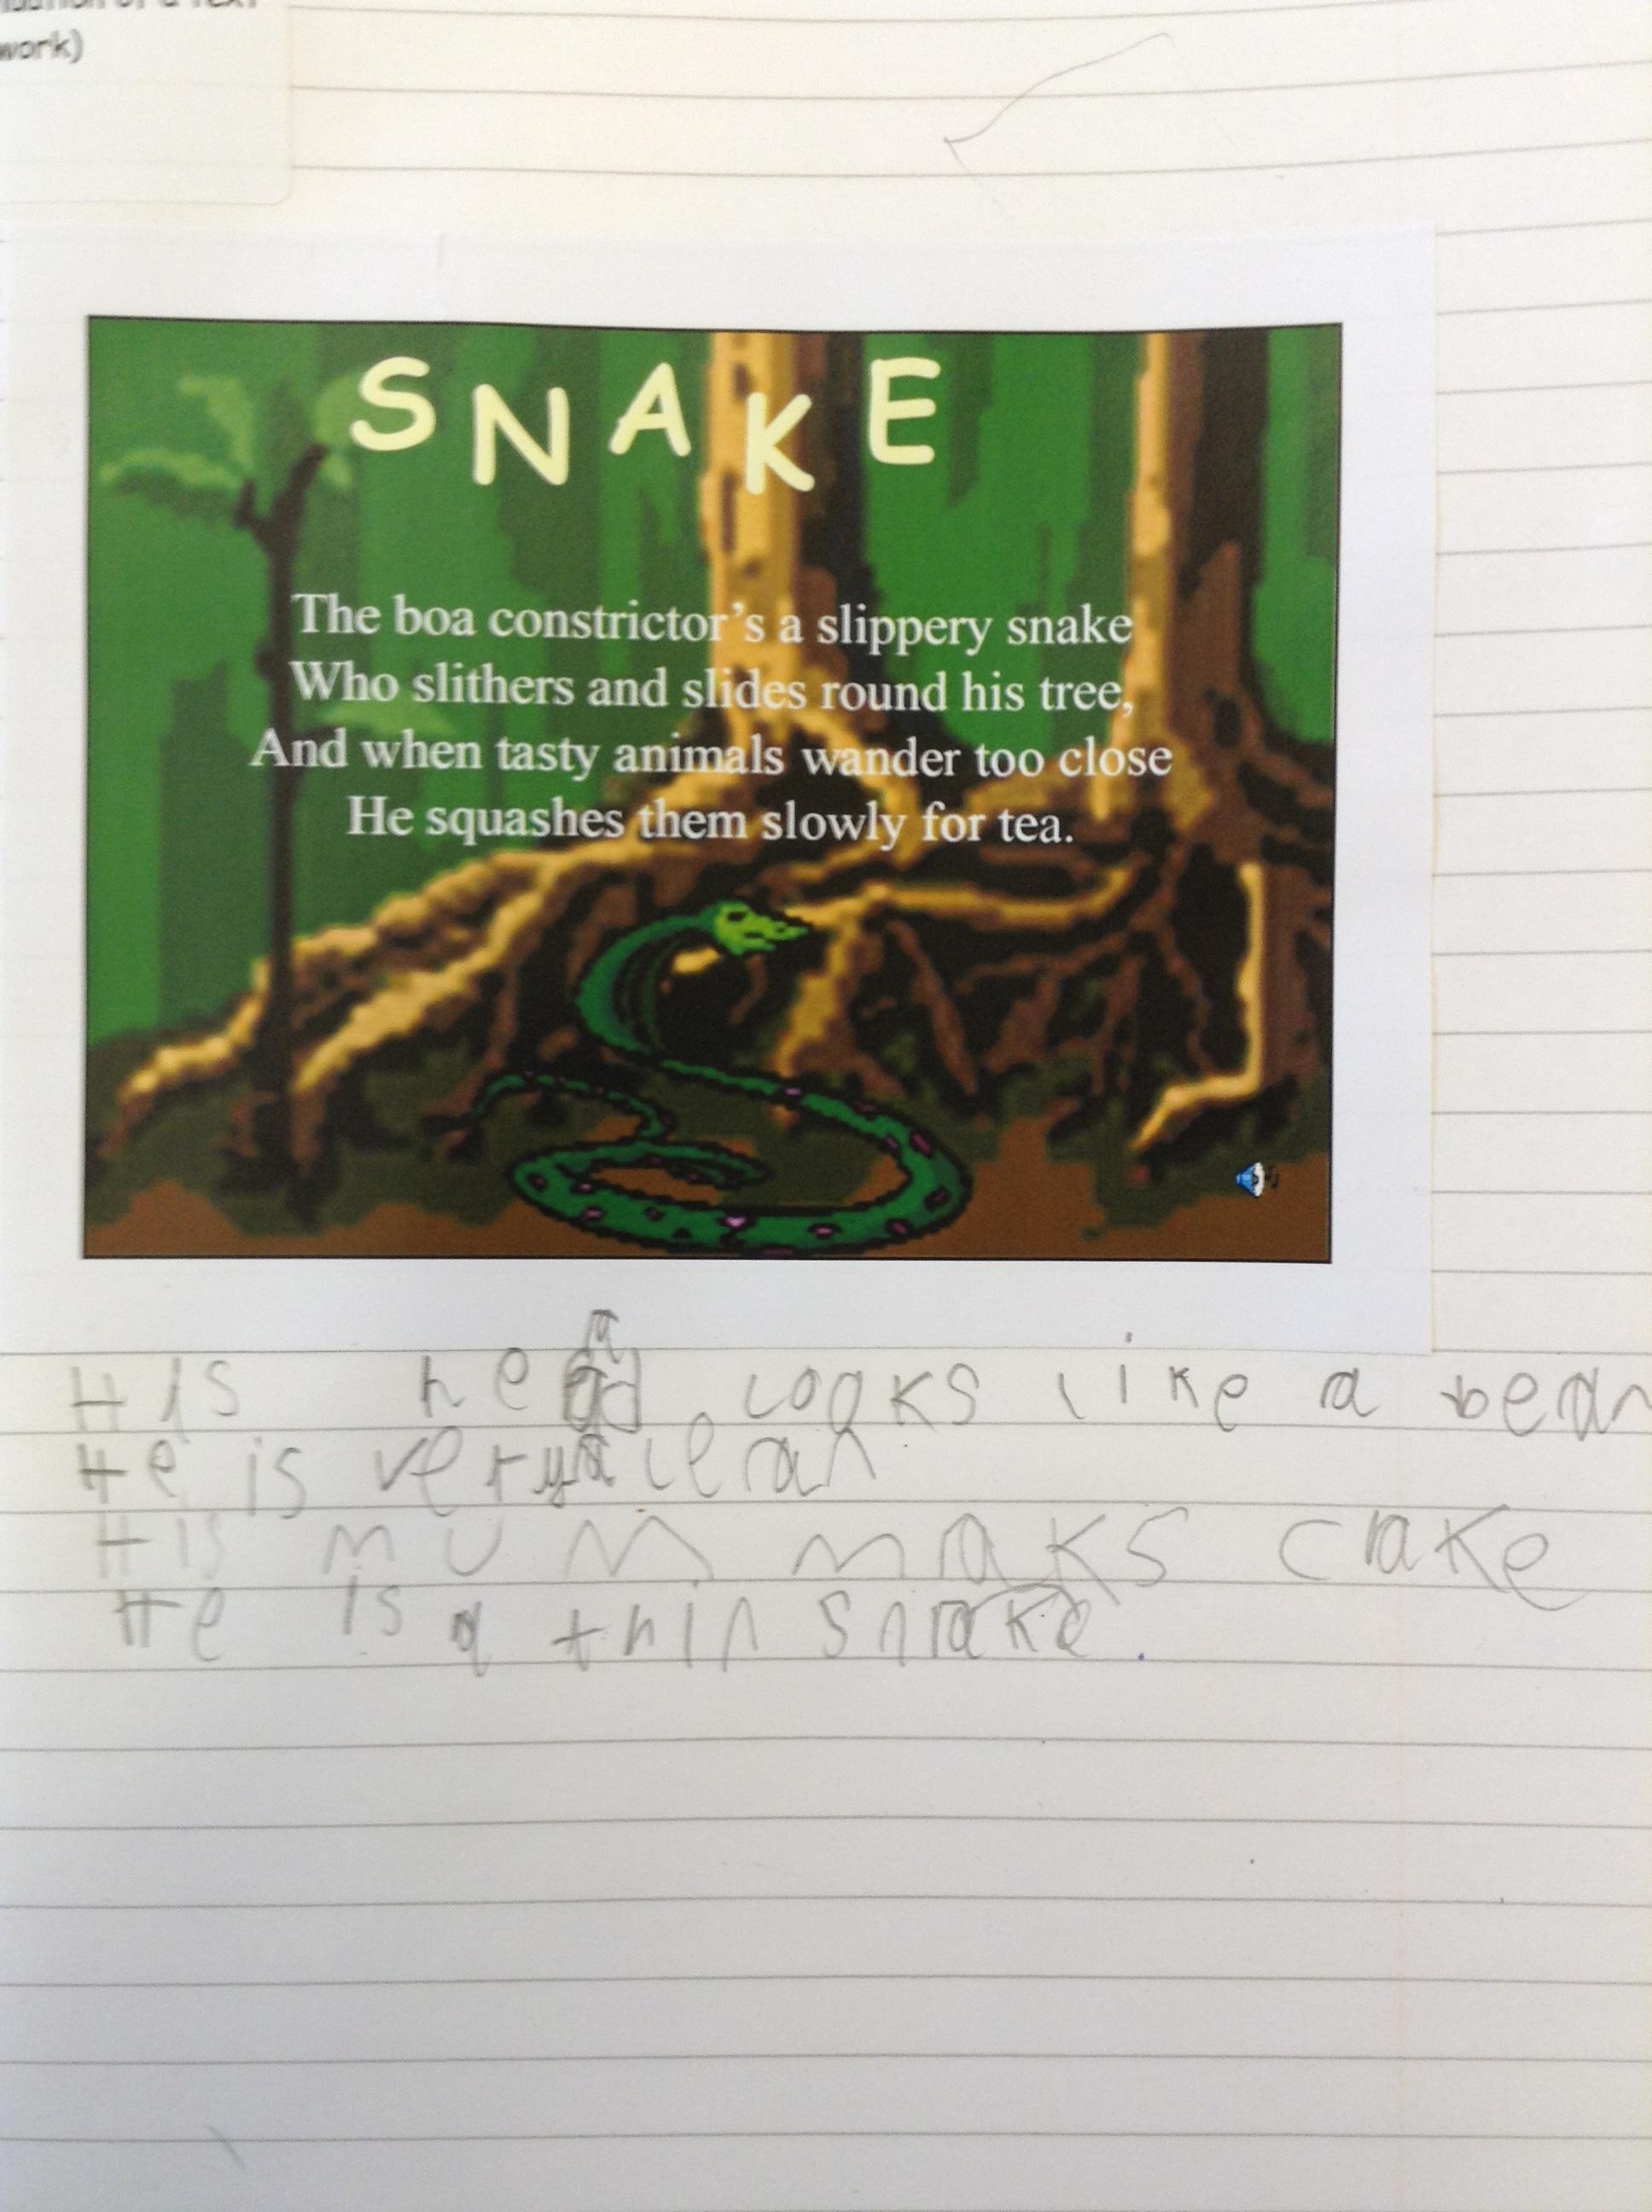 work)
SNAKE
The boa constrictor's a slippery snake
Who slithers and slides round his tree,
And when tasty animals wander too close
He squashes them slowly for tea.
His head looks like a bean
He is very lean
His mum maks cake
He is a thin snake.